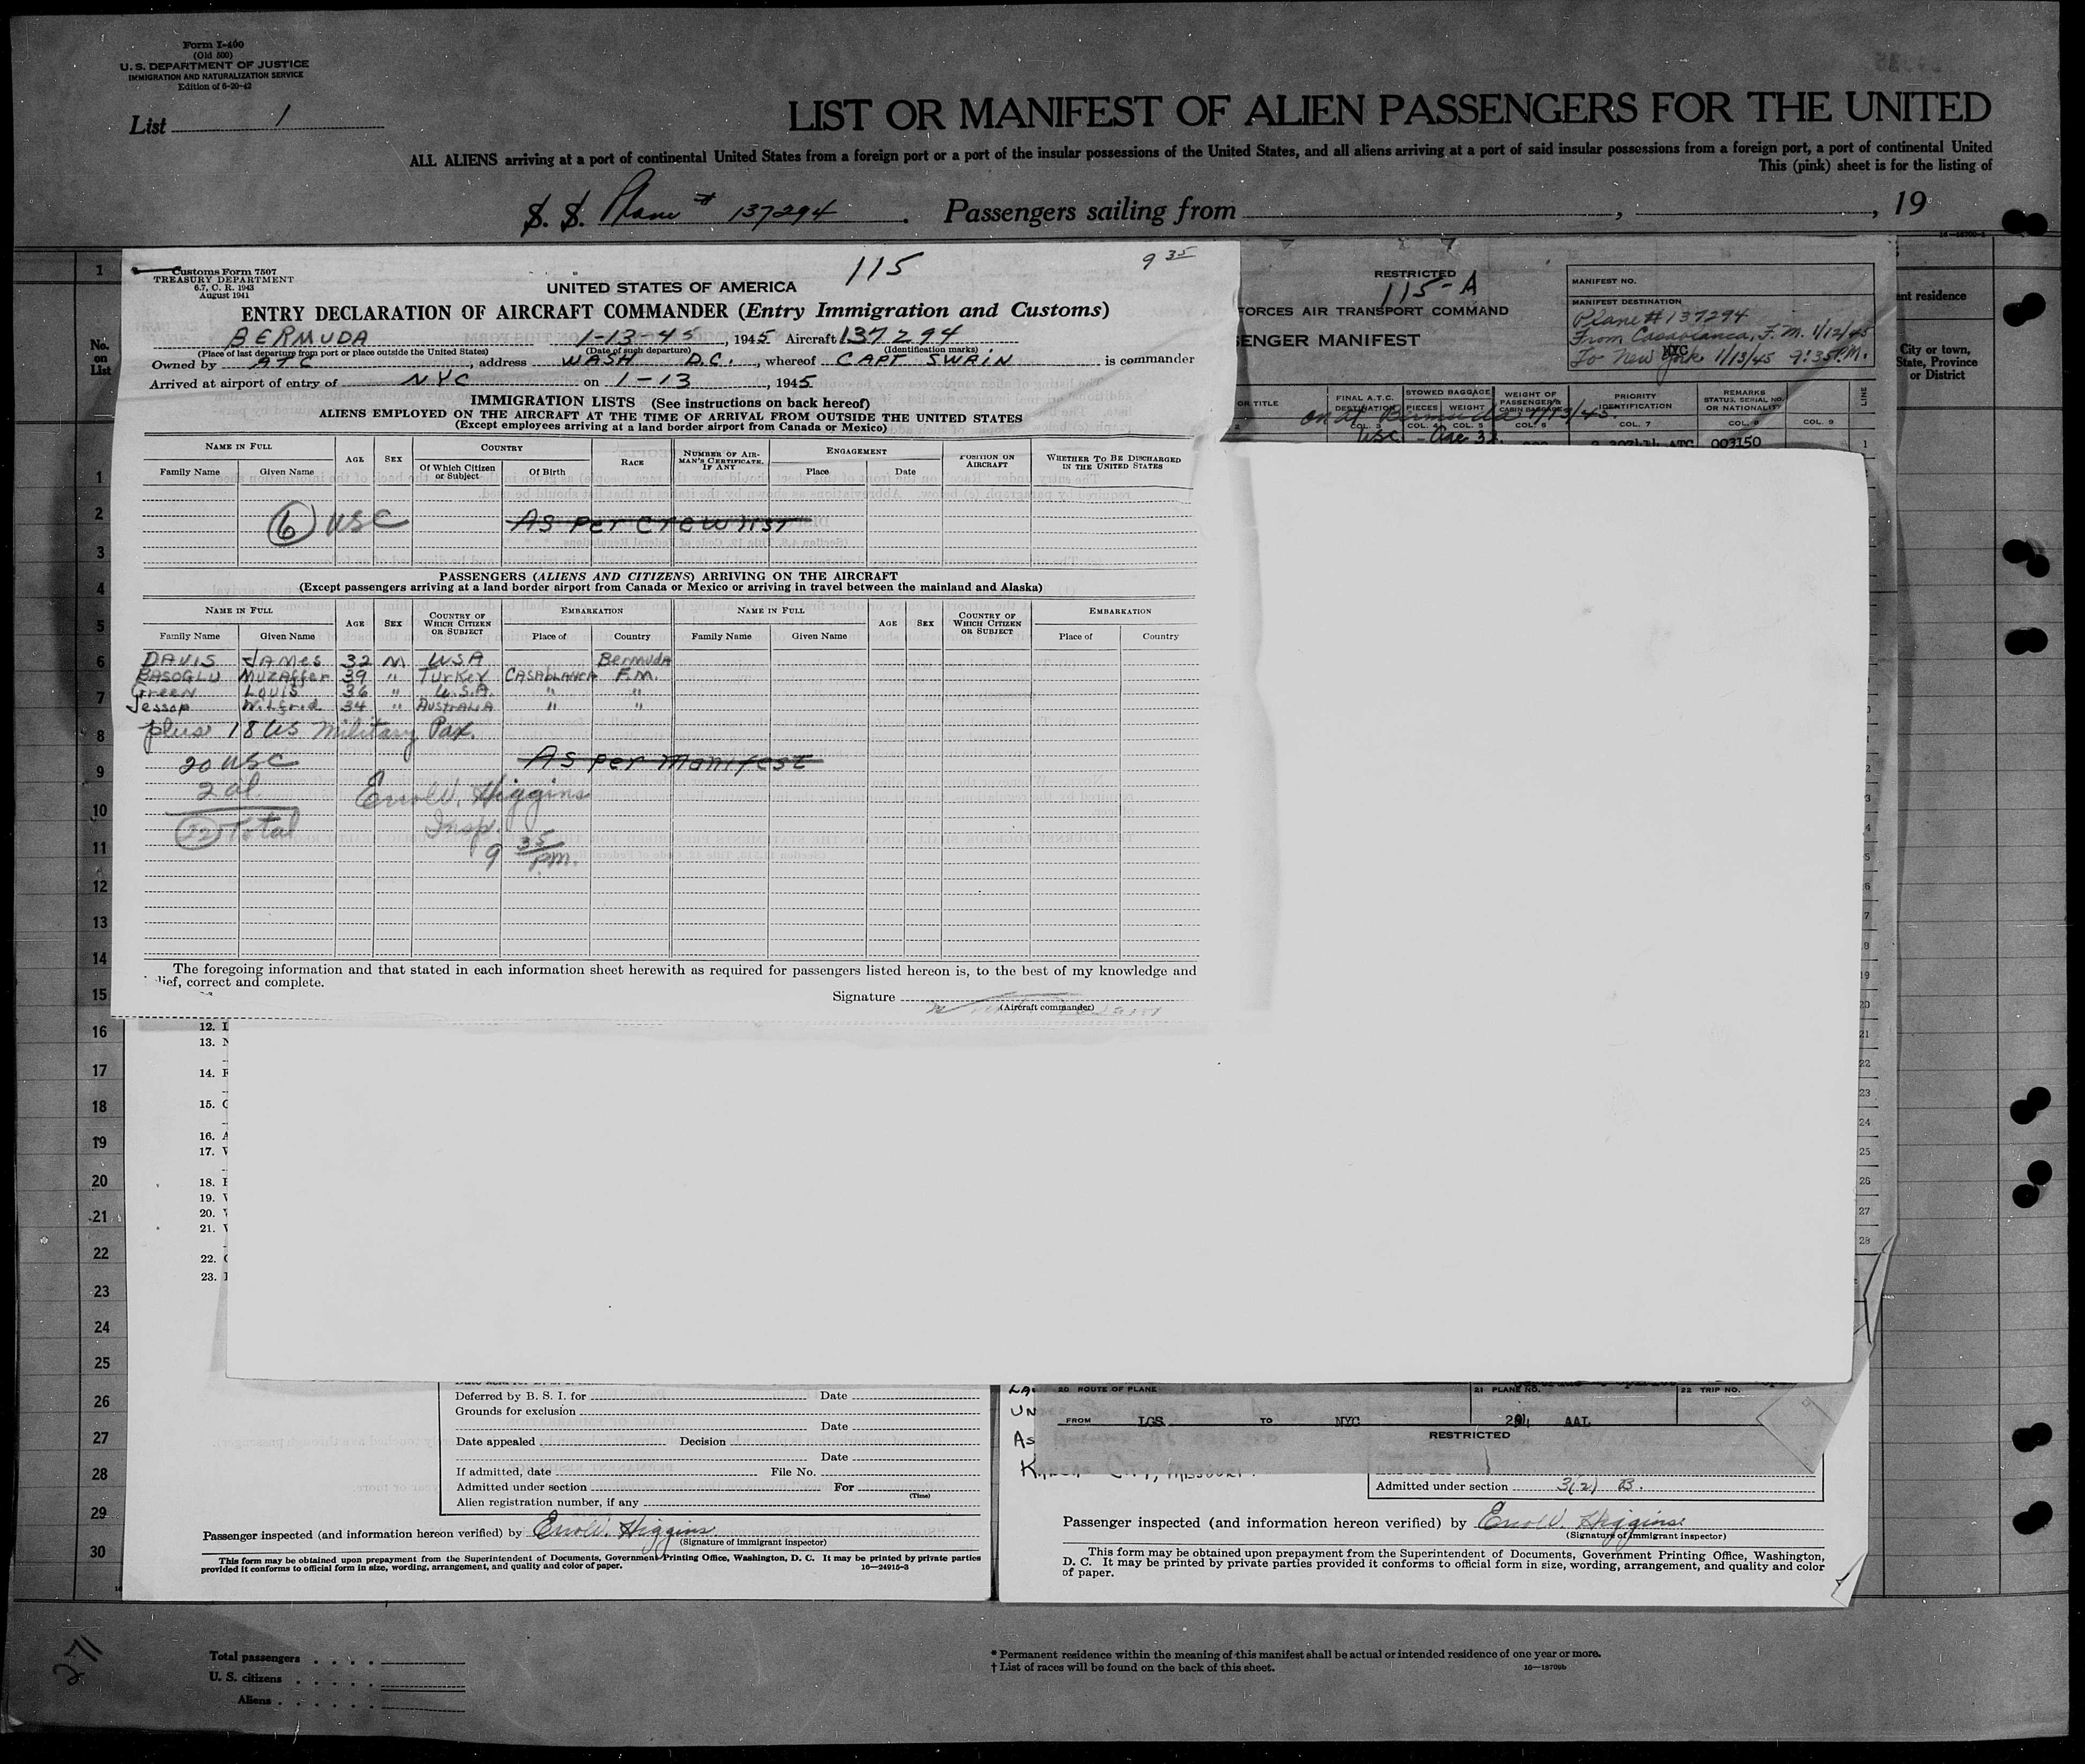 Form I-400
(Old 500)
U. S. DEPARTMENT OF JUSTICE
IMMIGRATION AND NATURALIZATION SERVICE
Edition of 6-20-42
List 1
LIST OR MANIFEST OF ALIEN PASSENGERS FOR THE UNITED
ALL ALIENS arriving at a port of continental United States from a foreign port or a port of the insular possessions of the United States, and all aliens arriving at a port of said insular possessions from a foreign port, a port of continental United
This (pink) sheet is for the listing of
S. S. Plane # 137294. Passengers sailing from , , 19
No. on List
Customs Form 7507
TREASURY DEPARTMENT
6.7, C. R. 1943
August 1941
115
9 35
UNITED STATES OF AMERICA
ENTRY DECLARATION OF AIRCRAFT COMMANDER (Entry Immigration and Customs)
BERMUDA 1-13-45, 1945 Aircraft 137294
(Place of last departure from port or place outside the United States) (Date of such departure) (Identification marks)
Owned by ATC, address WASH D.C., whereof CAPT SWAIN is commander
Arrived at airport of entry of NYC on 1-13, 1945
IMMIGRATION LISTS (See instructions on back hereof)
ALIENS EMPLOYED ON THE AIRCRAFT AT THE TIME OF ARRIVAL FROM OUTSIDE THE UNITED STATES
(Except employees arriving at a land border airport from Canada or Mexico)
NAME IN FULL AGE SEX COUNTRY RACE NUMBER OF AIRMAN'S CERTIFICATE, IF ANY ENGAGEMENT POSITION ON AIRCRAFT WHETHER TO BE DISCHARGED IN THE UNITED STATES
Family Name Given Name Of Which Citizen or Subject Of Birth Place Date
6 USC As per crew list
PASSENGERS (ALIENS AND CITIZENS) ARRIVING ON THE AIRCRAFT
(Except passengers arriving at a land border airport from Canada or Mexico or arriving in travel between the mainland and Alaska)
NAME IN FULL AGE SEX COUNTRY OF WHICH CITIZEN OR SUBJECT EMBARKATION NAME IN FULL AGE SEX COUNTRY OF WHICH CITIZEN OR SUBJECT EMBARKATION
Family Name Given Name Place of Country Family Name Given Name Place of Country
DAVIS JAMES 32 M USA Bermuda
BASOGLU Muzaffer 39 " Turkey CASABLANCA F.M.
Green Louis 36 " U.S.A. " "
Jessop Wilfrid 34 " AUSTRALIA " "
plus 18 US Military Pax.
20 USC As per Manifest
2 al Errol V. Higgins
22 Total Insp.
9 35 P.M.
The foregoing information and that stated in each information sheet herewith as required for passengers listed hereon is, to the best of my knowledge and
lief, correct and complete.
Signature
(Aircraft commander)
RESTRICTED
115-A
FORCES AIR TRANSPORT COMMAND
ENGER MANIFEST
MANIFEST NO.
MANIFEST DESTINATION
Plane # 137294
From Casablanca, F.M. 1/12/45
To New York 1/13/45 9:35 P.M.
NYC
OR TITLE FINAL A.T.C. DESTINATION STOWED BAGGAGE WEIGHT OF PASSENGER & CABIN BAGGAGE PRIORITY IDENTIFICATION REMARKS STATUS, SERIAL NO. OR NATIONALITY LINE
PIECES WEIGHT
COL. 3 COL. 4 COL. 5 COL. 6 COL. 7 COL. 8 COL. 9
on at Bermuda 1/13/45.
USC - age 32
ATC 003150 1
ent residence
City or town, State, Province or District
1
2
3
4
5
6
7
8
9
10
11
12
13
14
15
16
17
18
19
20
21
22
23
24
25
26
27
28
29
30
12. I
13. N
14. F
15. C
16. A
17. V
18. F
19. V
20.
21. V
22. C
23. I
Deferred by B. S. I. for Date
Grounds for exclusion
Date
Date appealed Decision
Date
If admitted, date File No.
Admitted under section For
(Time)
Alien registration number, if any
Passenger inspected (and information hereon verified) by Errol V. Higgins
(Signature of immigrant inspector)
This form may be obtained upon prepayment from the Superintendent of Documents, Government Printing Office, Washington, D. C. It may be printed by private parties
provided it conforms to official form in size, wording, arrangement, and quality and color of paper. 16—24915-3
20 ROUTE OF PLANE 21 PLANE NO. 22 TRIP NO.
FROM LGS TO NYC 294 AAL
RESTRICTED
UN
AS
KANSAS CITY, MISSOURI.
Admitted under section 3(2) B.
Passenger inspected (and information hereon verified) by Errol V. Higgins
(Signature of immigrant inspector)
This form may be obtained upon prepayment from the Superintendent of Documents, Government Printing Office, Washington,
D. C. It may be printed by private parties provided it conforms to official form in size, wording, arrangement, and quality and color
of paper.
271
Total passengers
U. S. citizens
Aliens
* Permanent residence within the meaning of this manifest shall be actual or intended residence of one year or more.
† List of races will be found on the back of this sheet. 16—18709b